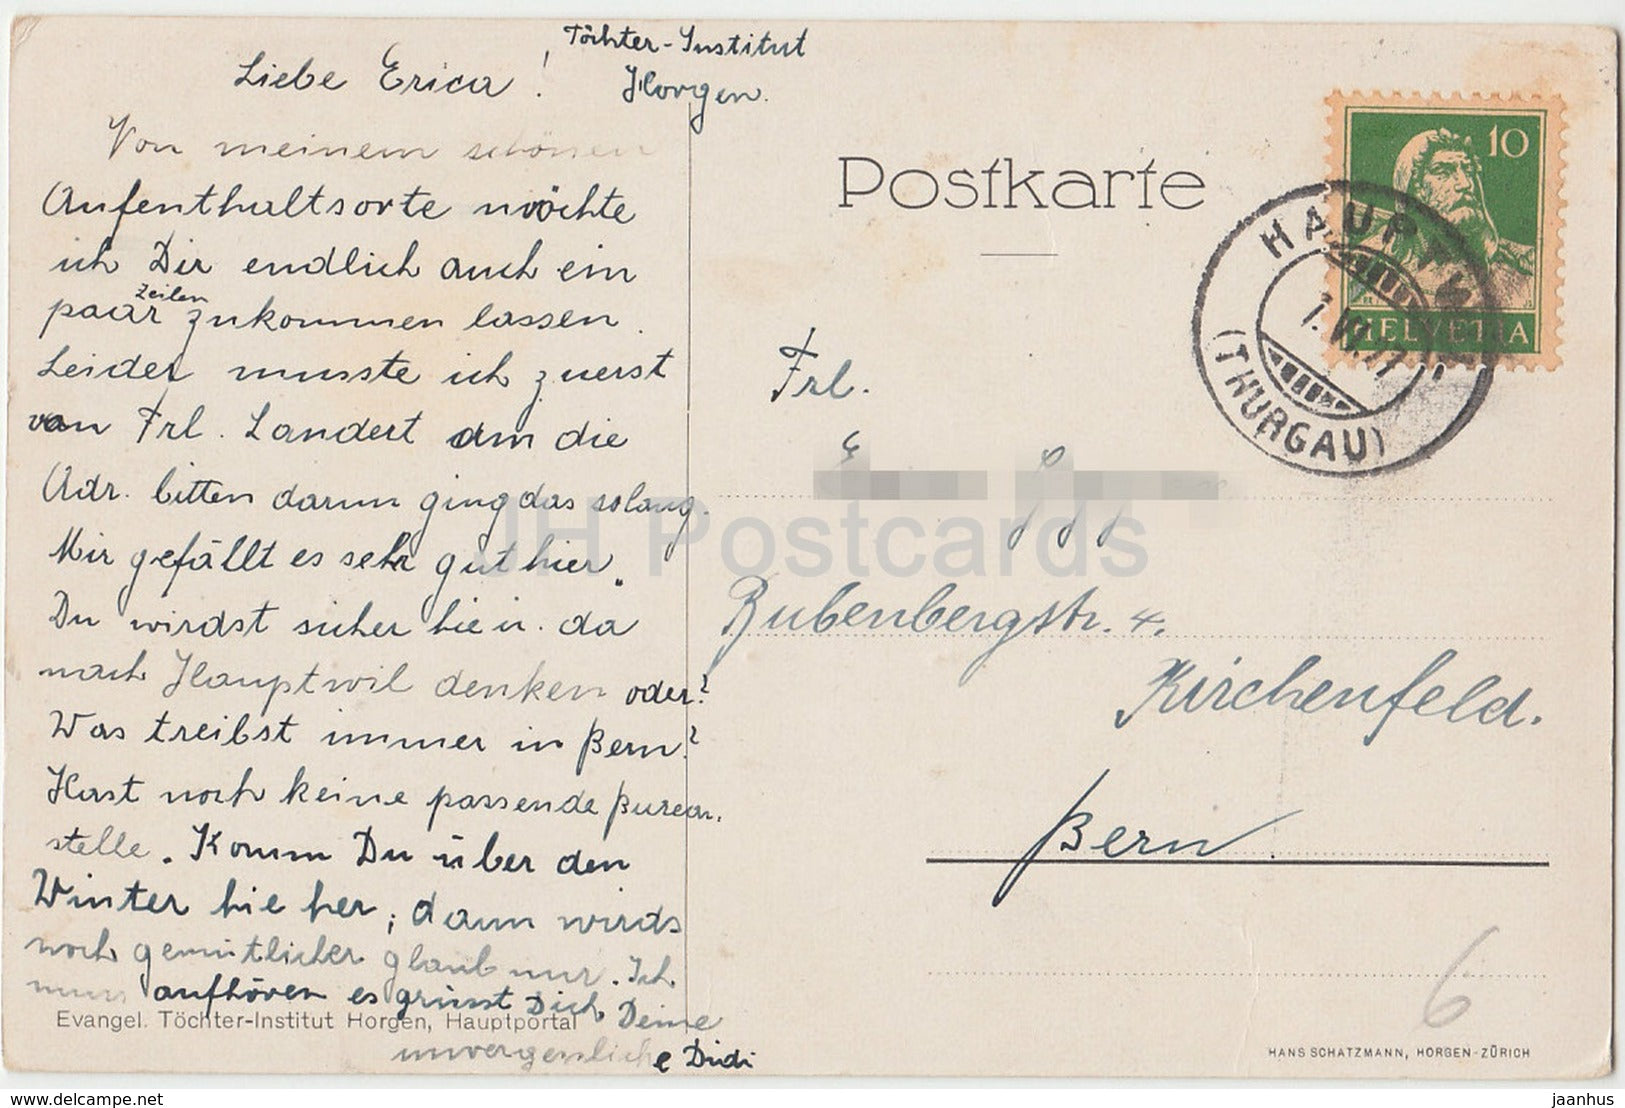 Töchter-Institut
Horgen.
Liebe Erica!
Von meinem schönen
Aufenthaltsorte möchte
ich Dir endlich auch ein
paar Zeilen zukommen lassen.
Leider musste ich zuerst
von Frl. Landert um die
Adr. bitten darum ging das so lang.
Mir gefällt es sehr gut hier.
Du wirdst sicher hie u. da
nach Hauptwil denken oder?
Was treibst immer in Bern?
Hast noch keine passende Bureau,
stelle. Komm Du über den
Winter hie her, dann wirds
noch gemütlicher glaub nur. Ich
muss aufhören es grüsst Dich Deine
unvergessliche Dudi
Evangel. Töchter-Institut Horgen, Hauptportal
Postkarte
10
HELVETIA
HAUPTW
(THURGAU)
Frl.
Bubenbergstr. 4.
Kirchenfeld.
Bern
6
HANS SCHATZMANN, HORGEN-ZÜRICH
JH Postcards
delcampe.net
jaanhus